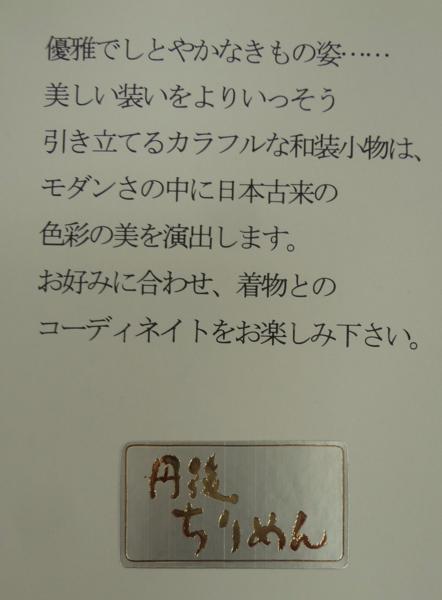 優雅でしとやかなきもの姿……
美しい装いをよりいっそう
引き立てるカラフルな和装小物は、
モダンさの中に日本古来の
色彩の美を演出します。
お好みに合わせ、着物との
コーディネイトをお楽しみ下さい。
丹後
ちりめん